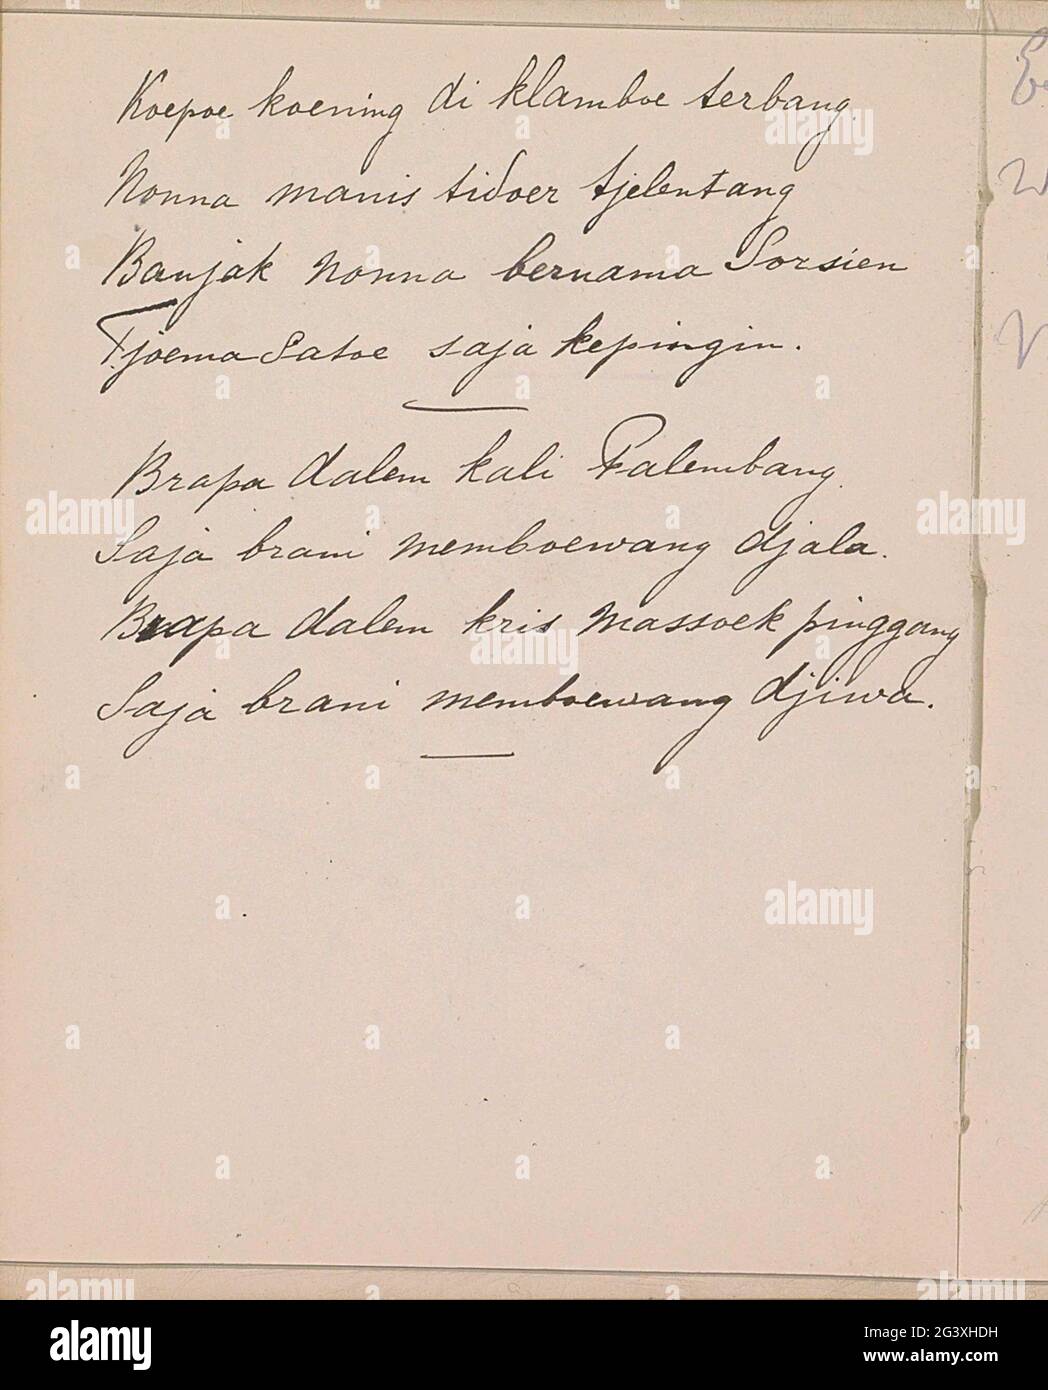 Koepoe koening di klamboe terbang.
Nonna manis tidoer tjelentang
Banjak nonna bernama Sorsien
Tjoema Satoe saja kepingin.
Brapa dalem kali Palembang.
Saja brani memboewang djala.
Brapa dalem kris massoek pinggang
Saja brani memboewang djiwa.
alamy
Image ID: 2G3XHDH
www.alamy.com